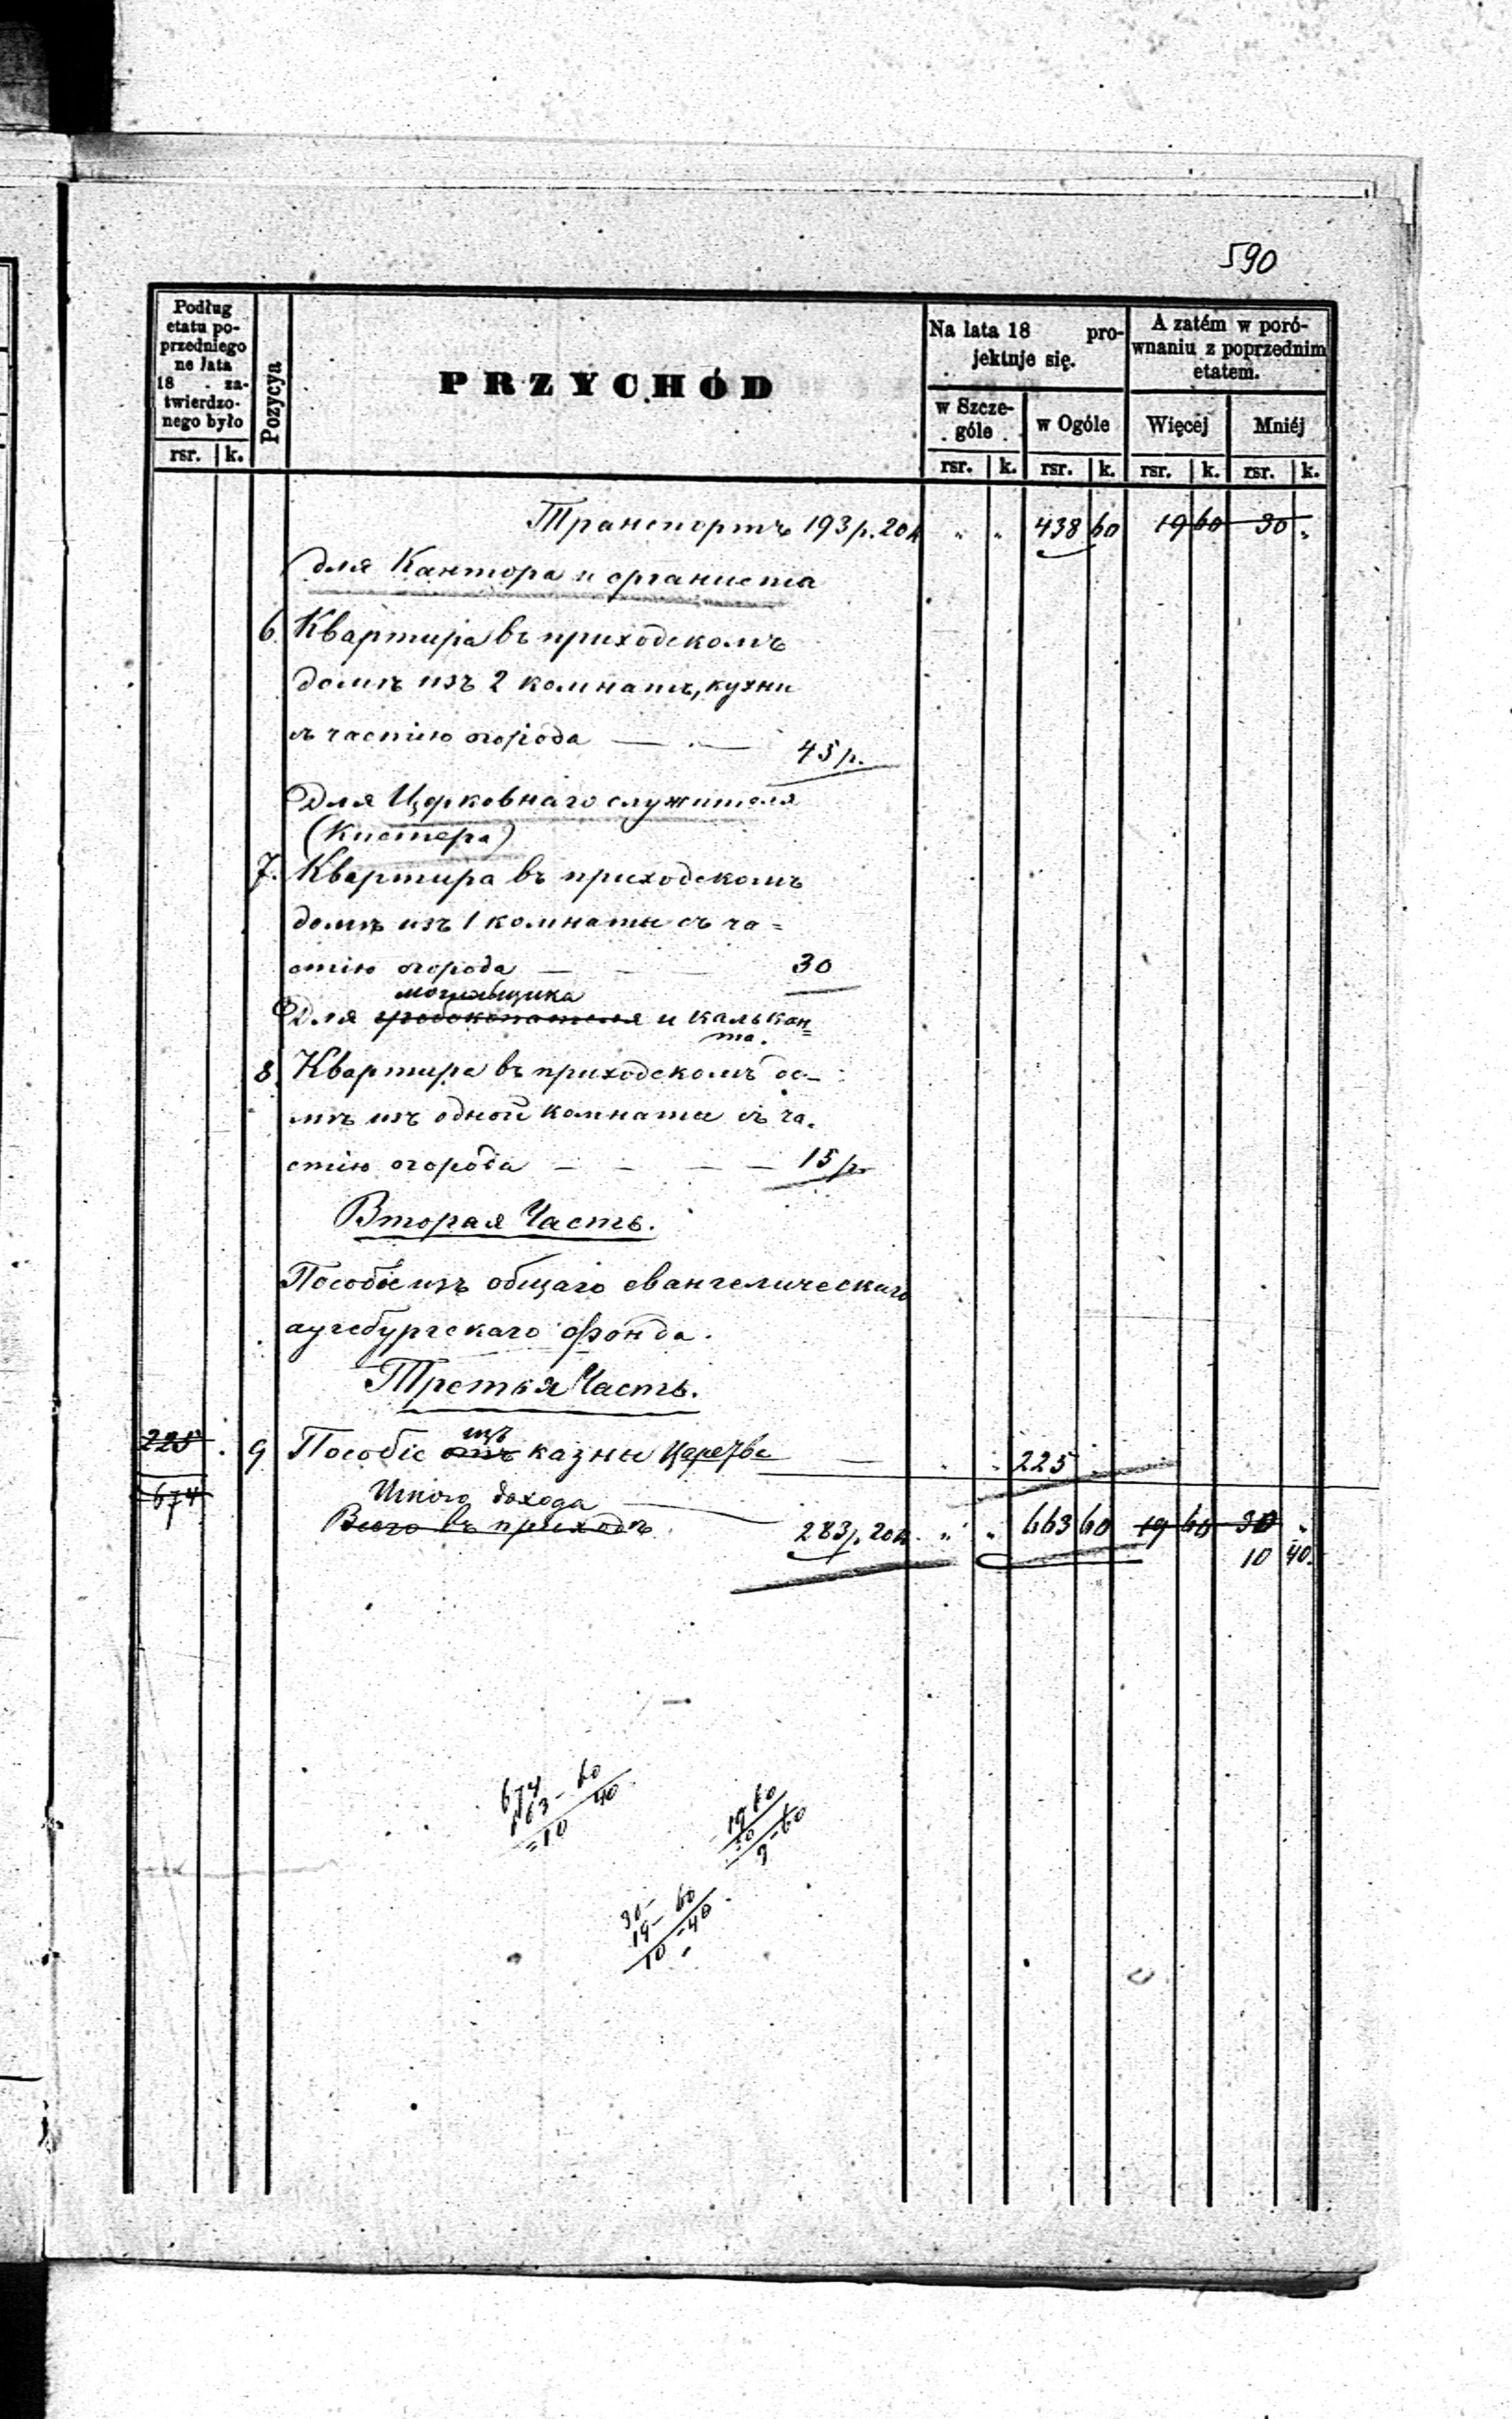 590
Podług etatu poprzedniego na lata 18 . zatwierdzonego było
Pozycya
PRZYCHÓD
Na lata 18 projektuje się.
A zatém w porównaniu z poprzednim etatem.
w Szczególe
w Ogóle
Więcej
Mniéj
rsr. k. rsr. k. rsr. k. rsr. k. rsr. k.
Транспортъ 193 р. 20 к „ „ 438 60 19 60 30 „
для Кантора и органиста
6. Квартира въ приходскомъ
домѣ изъ 2 комнатъ, кухни
съ частію огорода — . — 45 р.
Для Церковнаго служителя
(Кистера)
7. Квартира въ приходскомъ
домѣ изъ 1 комнаты съ ча=
стію огорода — — — 30
могильщика
Для гробокопателя и калькан=
та.
8. Квартира въ приходскомъ до-
мѣ изъ одной комнаты съ ча-
стію огорода — — — — 15 р
Вторая Часть.
Пособіе изъ общаго евангелическаго
аугсбургскаго фонда.
Третья Часть.
изъ
225 . 9 Пособіе отъ казны Царства — . . 225
674 Итого дохода
Всего въ приходѣ 283 р. 20 к. „ „ 663 60 19 60 30 „
10 40
674
663 - 60
= 10 40
19 60
30
9 - 60
30 -
19 - 60
10 - 40